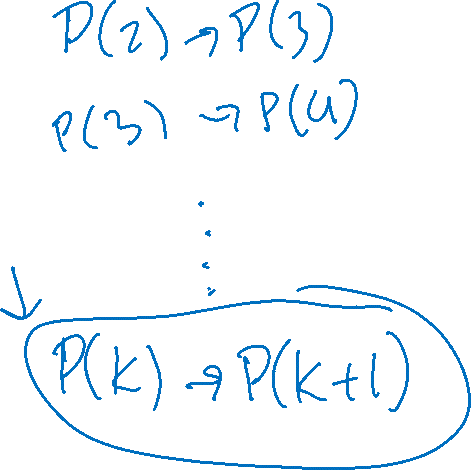 P(2) → P(3)
P(3) → P(4)
⋮
P(k) → P(k+1)